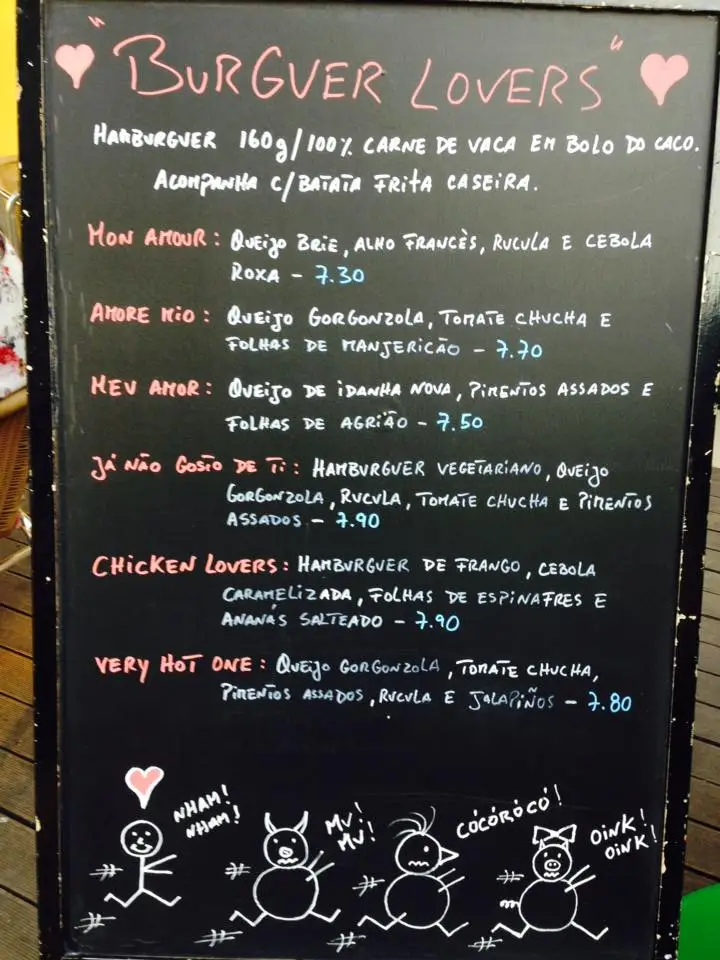 "BURGUER LOVERS"
HAMBURGUER 160g/100% CARNE DE VACA EM BOLO DO CACO.
ACOMPANHA C/BATATA FRITA CASEIRA.
MON AMOUR: QUEIJO BRIE, ALHO FRANCÊS, RUCULA E CEBOLA
ROXA - 7.30
AMORE MIO: QUEIJO GORGONZOLA, TOMATE CHUCHA E
FOLHAS DE MANJERICÃO - 7.70
MEU AMOR: QUEIJO DE IDANHA NOVA, PIMENTOS ASSADOS E
FOLHAS DE AGRIÃO - 7.50
JÁ NÃO GOSTO DE TI: HAMBURGUER VEGETARIANO, QUEIJO
GORGONZOLA, RUCULA, TOMATE CHUCHA E PIMENTOS
ASSADOS - 7.90
CHICKEN LOVERS: HAMBURGUER DE FRANGO, CEBOLA
CARAMELIZADA, FOLHAS DE ESPINAFRES E
ANANÁS SALTEADO - 7.90
VERY HOT ONE: QUEIJO GORGONZOLA, TOMATE CHUCHA,
PIMENTOS ASSADOS, RUCULA E JALAPIÑOS - 7.80
NHAM!
NHAM!
MU!
MU!
CÓCÓRÓCÓ!
OINK!
OINK!